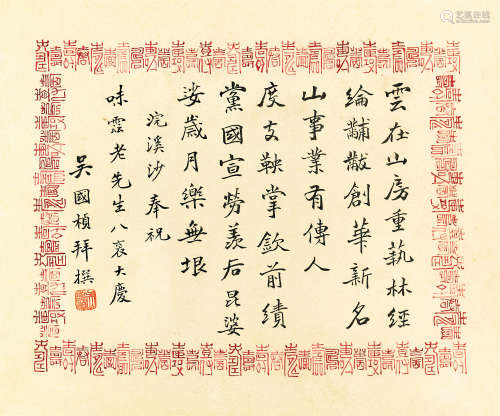 雲在山房重藝林經
綸黼黻創華新名
山事業有傳人
度支鞅掌欽前績
黨國宣勞羨后昆婆
娑歲月樂無垠
浣溪沙奉祝
味雲老先生八袠大慶
吳國楨拜撰